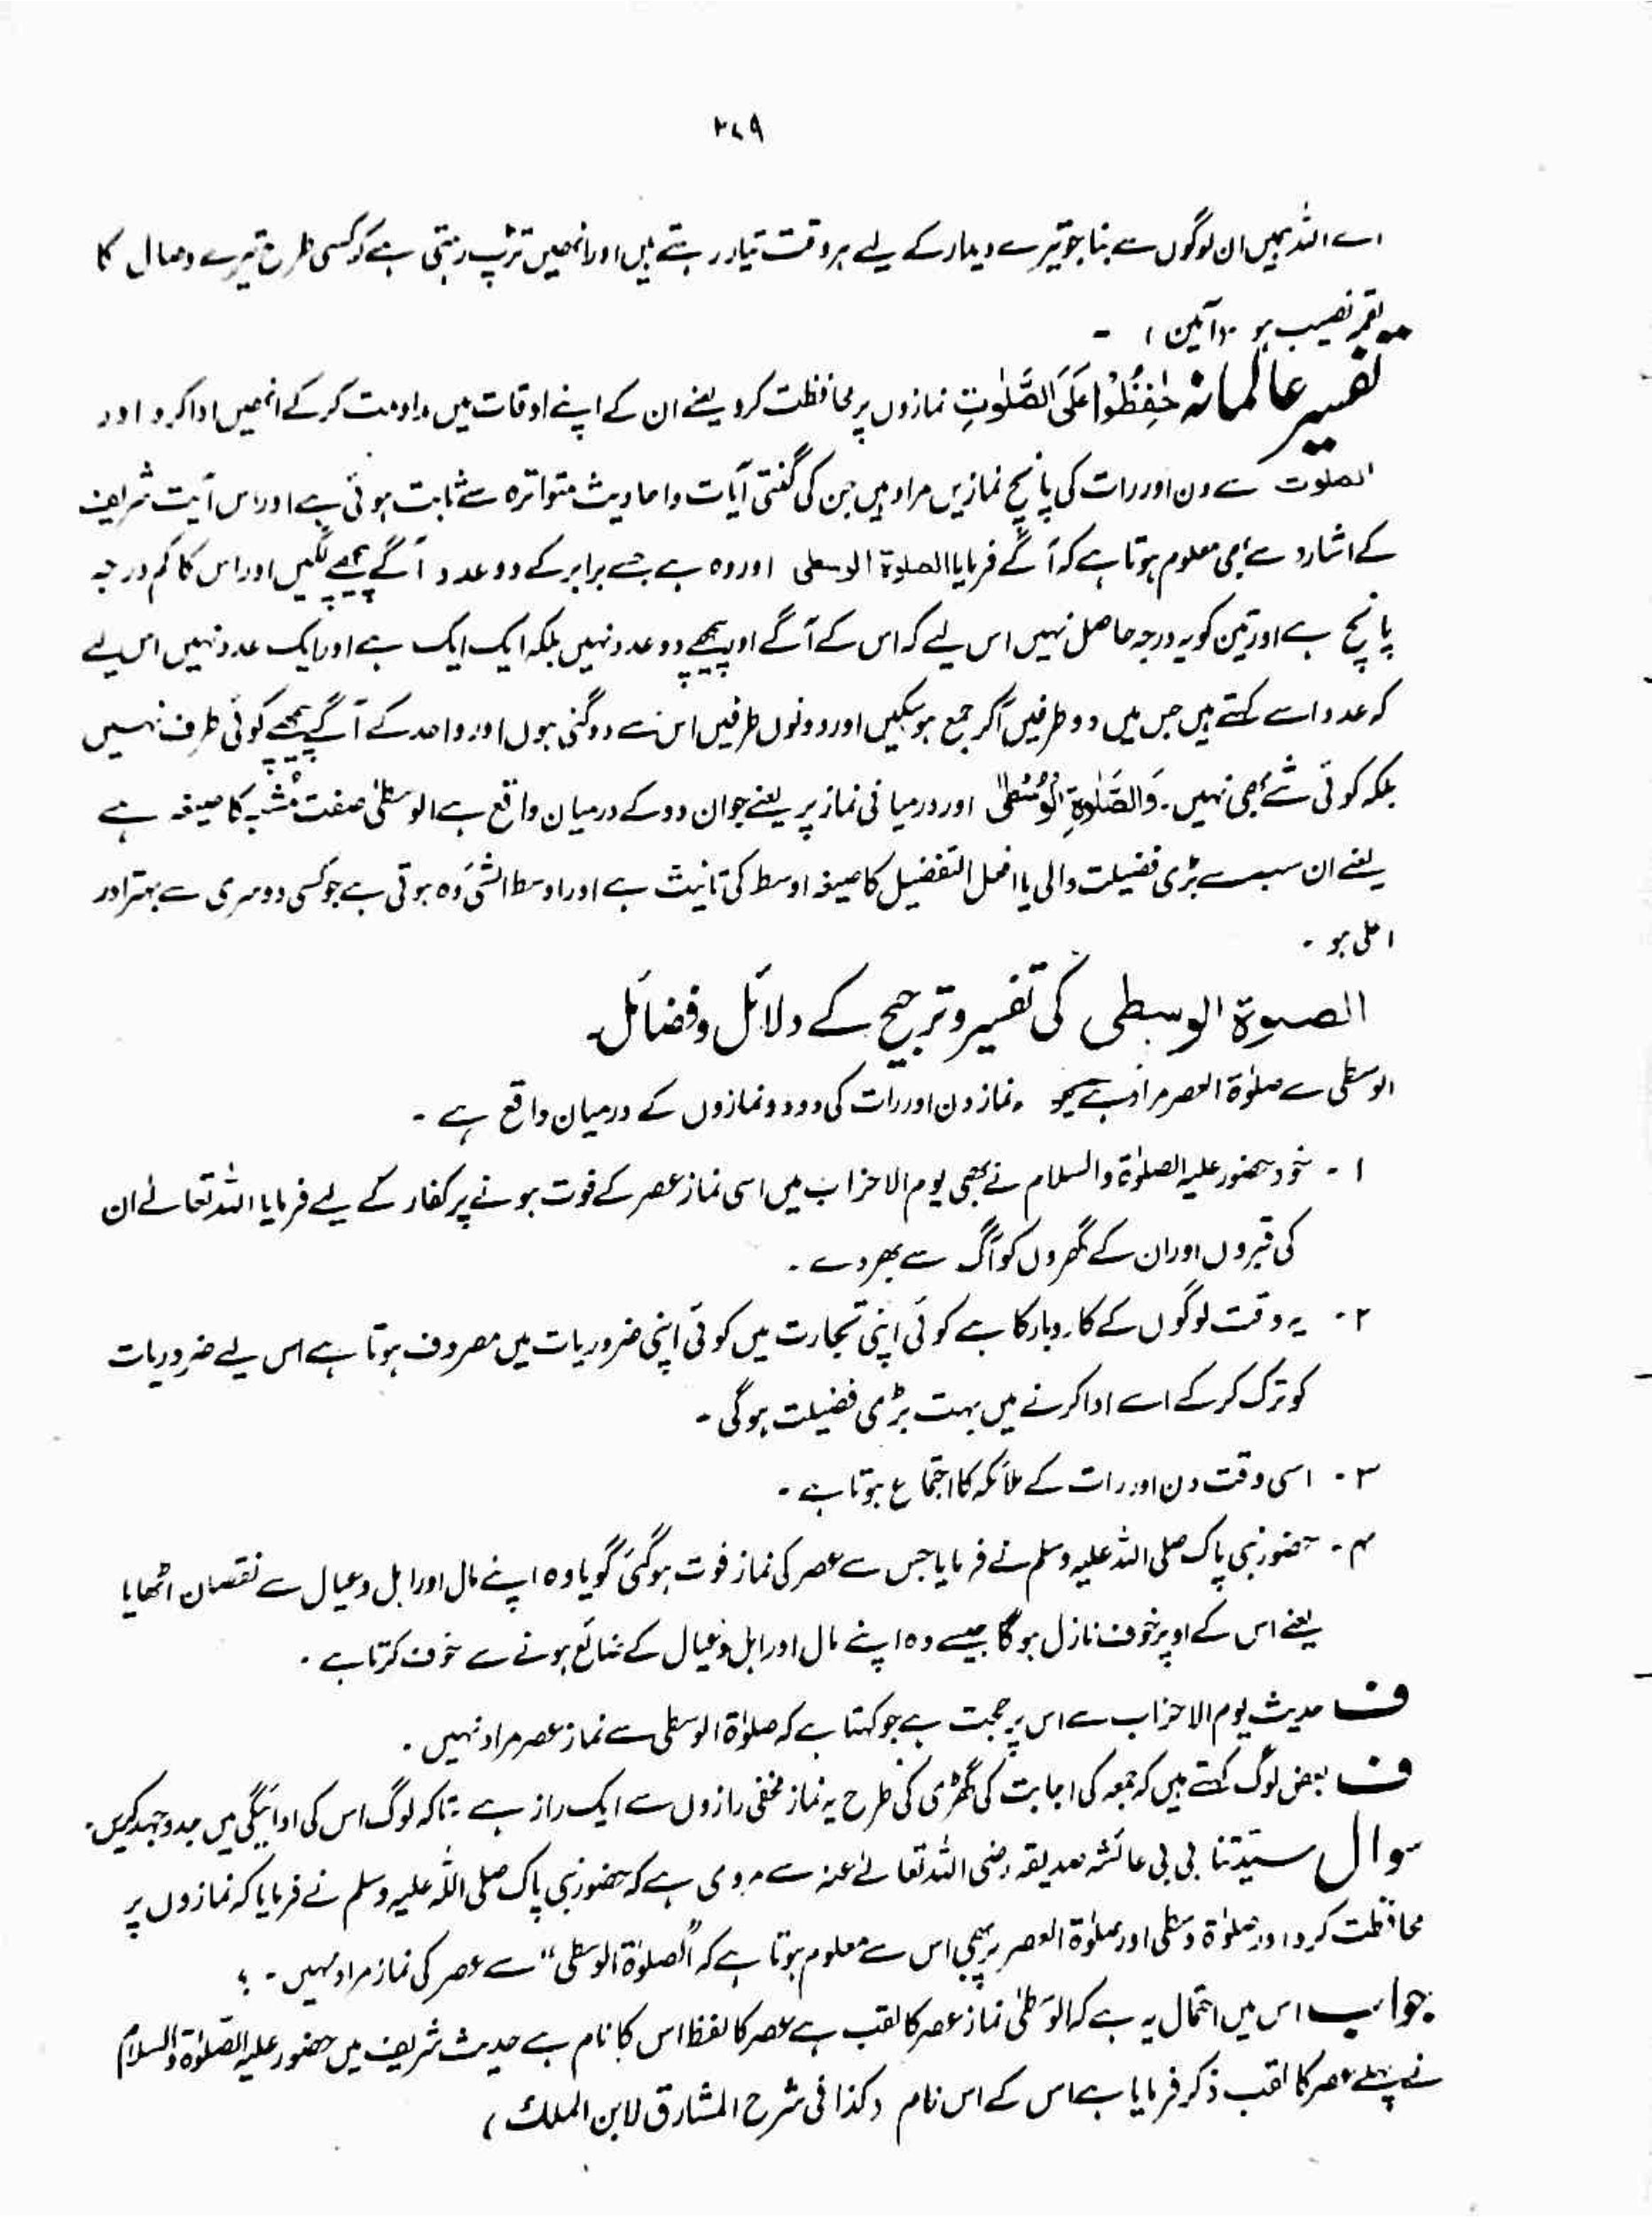 ۳۷۹
اے اللہ ہمیں ان لوگوں سے بنا جو تیرے دیدار کے لیے ہر وقت تیار رہتے ہیں اور انھیں تڑپ رہتی ہے کہ کسی طرح تیرے وصال کا
لقمہ نصیب ہو (آمین) ۔
تفسیر عالمانہ حٰفِظُوْا عَلَی الصَّلَوٰتِ نمازوں پر محافظت کرو یعنے ان کے اپنے اوقات میں مداومت کرکے انھیں ادا کرو اور
الصلوت سے دن اور رات کی پانچ نمازیں مراد ہیں جن کی گنتی آیات و احادیث متواترہ سے ثابت ہوئی ہے اور اس آیت شریف
کے اشارہ سے بھی معلوم ہوتا ہے کہ آگے فرمایا الصلوۃ الوسطی اور وہ ہے جسے برابر کے دو عدد آگے پیچھے لگیں اور اس کا کم درجہ
پانچ ہے اور تین کو یہ درجہ حاصل نہیں اس لیے کہ اس کے آگے اور پیچھے دو عدد نہیں بلکہ ایک ایک ہے اور ایک عدد نہیں اس لیے
کہ عدد اسے کہتے ہیں جس میں دو طرفیں آکر جمع ہو سکیں اور دونوں طرفیں اس سے دوگنی ہوں اور واحد کے آگے پیچھے کوئی طرف نہیں
بلکہ کوئی شے بھی نہیں ۔ وَالصَّلٰوۃِ الْوُسْطٰی اور درمیانی نماز پر یعنے جو ان دو کے درمیان واقع ہے الوسطیٰ صفت مُشبہ کا صیغہ ہے
یعنے ان سب سے بڑی فضیلت والی یا افعل التفضیل کا صیغہ اوسط کی تانیث ہے اور اوسط الشئ وہ ہوتی ہے جو کسی دوسری سے بہتر اور
اعلیٰ ہو ۔
الصلوۃ الوسطی کی تفسیر و ترجیح کے دلائل و فضائل۔
الوسطی سے صلوٰۃ العصر مراد ہے نماز دن اور رات کی دو دو نمازوں کے درمیان واقع ہے ۔
۱ ۔ خود حضور علیہ الصلوٰۃ والسلام نے بھی یوم الاحزاب میں اسی نماز عصر کے فوت ہونے پر کفار کے لیے فرمایا اللہ تعالےٰ ان
کی قبروں اور ان کے گھروں کو آگ سے بھر دے ۔
۲ ۔ یہ وقت لوگوں کے کاروبار کا ہے کوئی اپنی تجارت میں کوئی اپنی ضروریات میں مصروف ہوتا ہے اس لیے ضروریات
کو ترک کرکے اسے ادا کرنے میں بہت بڑی فضیلت ہوگی ۔
۳ ۔ اسی وقت دن اور رات کے ملائکہ کا اجتماع ہوتا ہے ۔
۴ ۔ حضور نبی پاک صلی اللہ علیہ وسلم نے فرمایا جس سے عصر کی نماز فوت ہوگئی گویا وہ اپنے مال اور اہل و عیال سے نقصان اٹھایا
یعنے اس کے اوپر خوف نازل ہوگا جیسے وہ اپنے مال اور اہل و عیال کے ضائع ہونے سے خوف کرتا ہے ۔
ف حدیث یوم الاحزاب سے اس پر حجت ہے جو کہتا ہے کہ صلوٰۃ الوسطی سے نماز عصر مراد نہیں ۔
ف بعض لوگ کہتے ہیں کہ جمعہ کی اجابت کی گھڑی کی طرح یہ نماز مخفی رازوں سے ایک راز ہے تاکہ لوگ اس کی ادائیگی میں جدوجہد کریں ۔
سوال سیّدتنا بی بی عائشہ صدیقہ رضی اللہ تعالےٰ عنہ سے مروی ہے کہ حضور نبی پاک صلی اللہ علیہ وسلم نے فرمایا کہ نمازوں پر
محافظت کرو اور صلوٰۃ وسطی اور صلوٰۃ العصر پر بھی اس سے معلوم ہوتا ہے کہ "الصلوٰۃ الوسطی" سے عصر کی نماز مراد نہیں ۔ ؟
جواب اس میں احتمال یہ ہے کہ الوسطیٰ نماز عصر کا لقب ہے عصر کا لفظ اس کا نام ہے حدیث شریف میں حضور علیہ الصلوٰۃ والسلام
نے پہلے عصر کا لقب ذکر فرمایا ہے اس کے اس نام (کذا فی شرح المشارق لابن الملک)